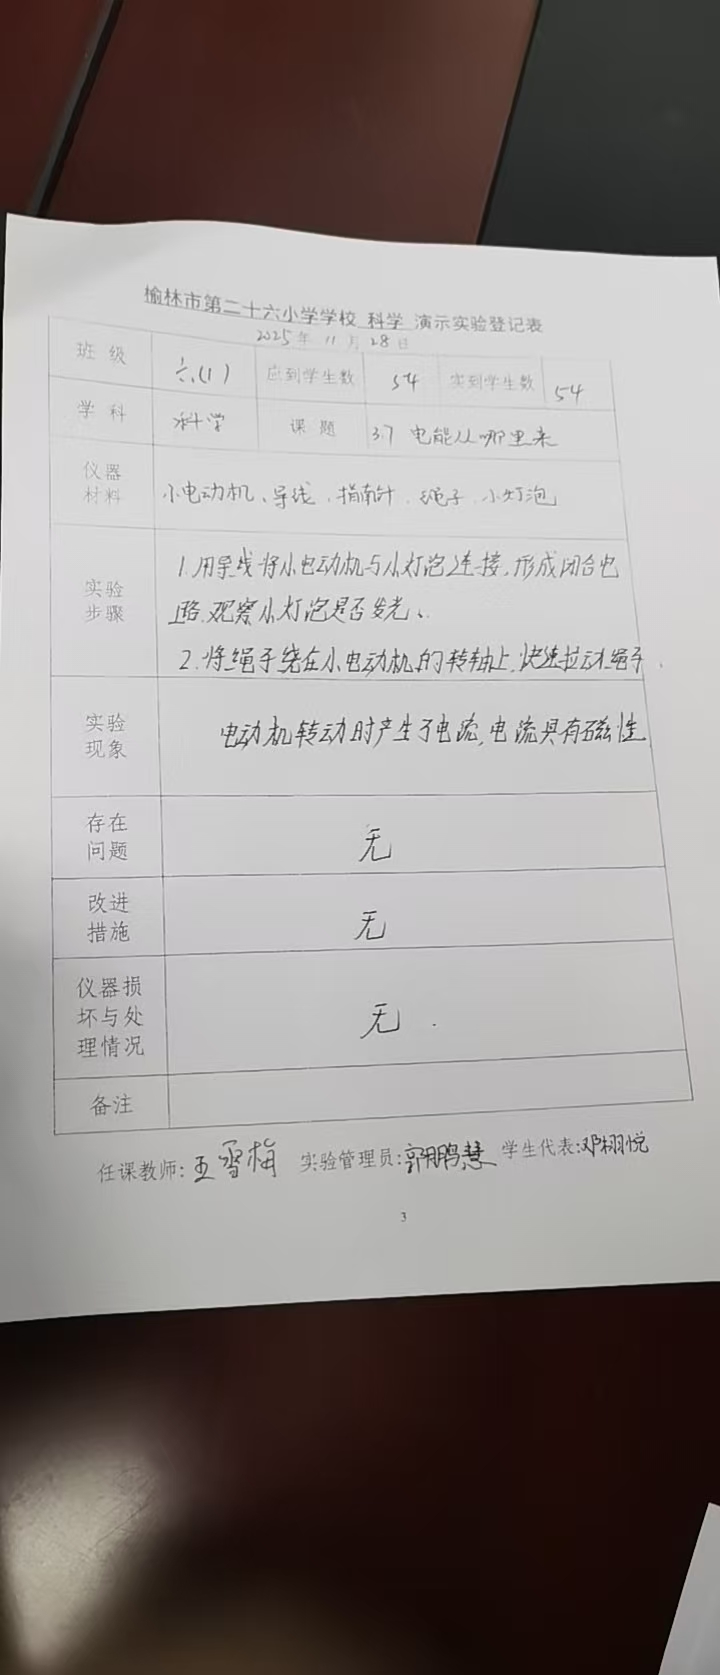 榆林市第二十六小学学校 科学 演示实验登记表
2025年 11月 28日
班级 六(1) 应到学生数 54 实到学生数 54
学科 科学 课题 3.7 电能从哪里来
仪器材料 小电动机、导线、指南针、绳子、小灯泡
实验步骤 1.用导线将小电动机与小灯泡连接,形成闭合电
路,观察小灯泡是否发光、
2.将绳子绕在小电动机的转轴上,快速拉动绳子.
实验现象 电动机转动时产生了电流,电流具有磁性
存在问题 无
改进措施 无
仪器损坏与处理情况 无.
备注
任课教师:王雪梅 实验管理员:郭鹏慧 学生代表:邓栩悦
3